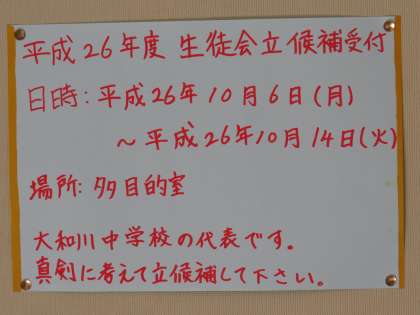 平成26年度 生徒会立候補受付
日時:平成26年10月6日(月)
～平成26年10月14日(火)
場所:多目的室
大和川中学校の代表です。
真剣に考えて立候補して下さい。